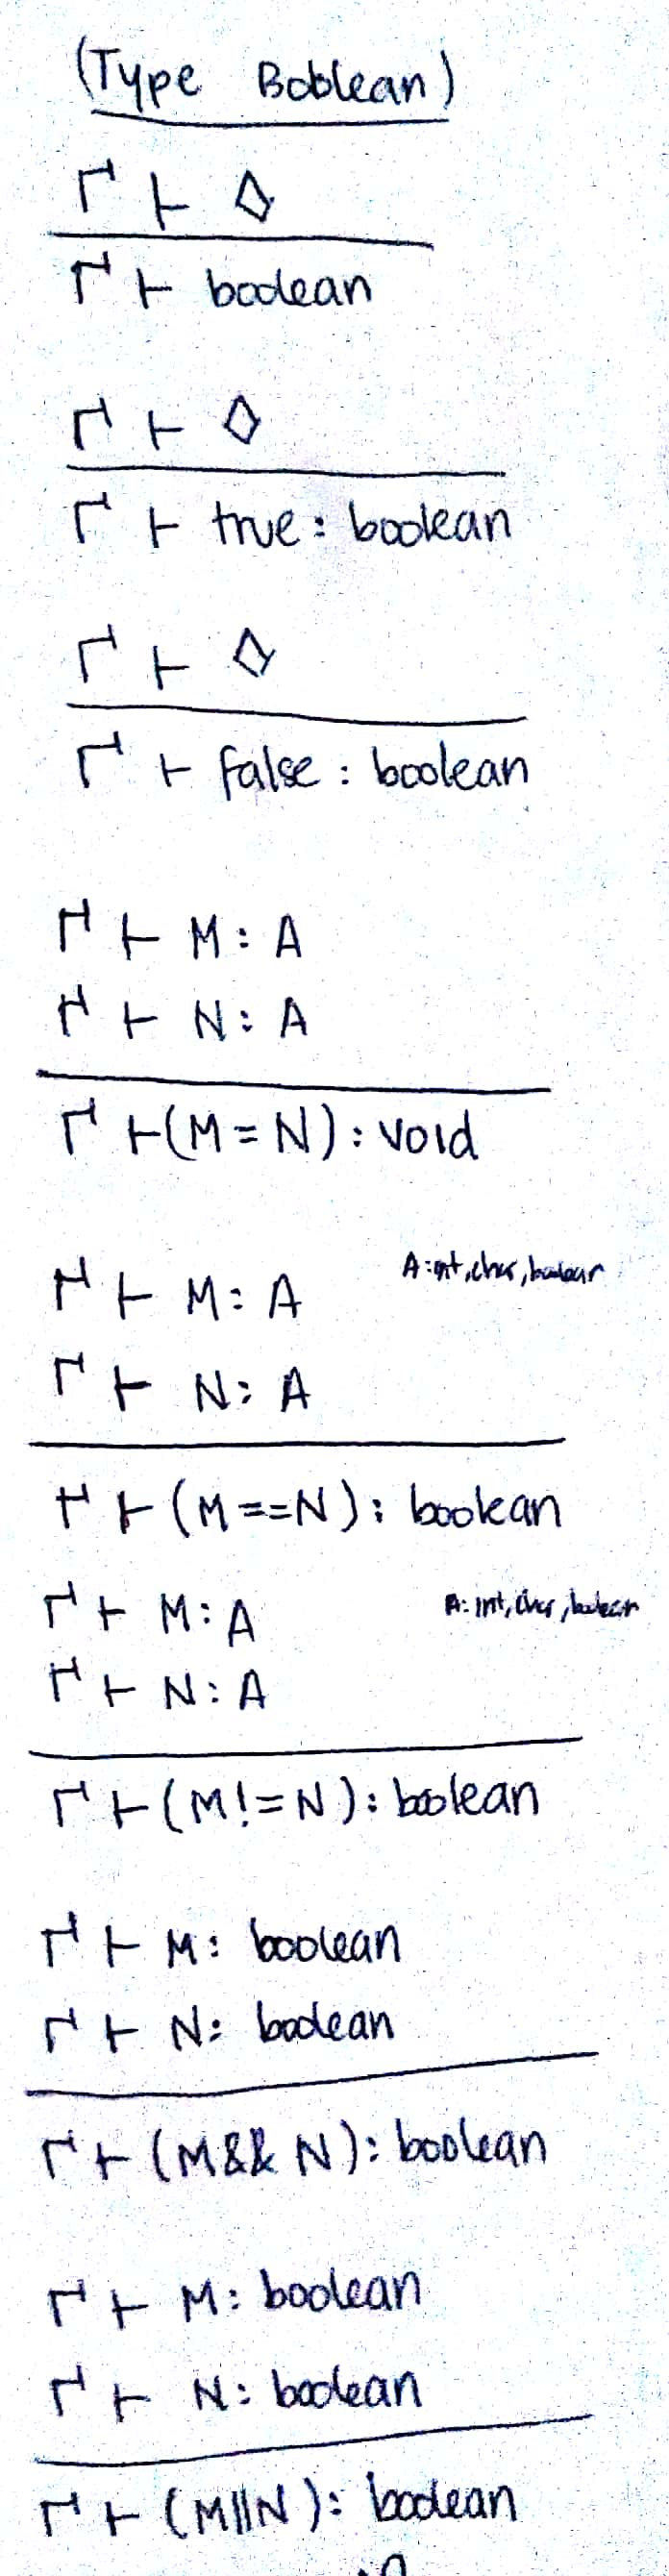 (Type Boolean)
Γ ⊢ ◇
Γ ⊢ boolean
Γ ⊢ ◇
Γ ⊢ true : boolean
Γ ⊢ ◇
Γ ⊢ false : boolean
Γ ⊢ M : A
Γ ⊢ N : A
Γ ⊢ (M = N) : void
Γ ⊢ M : A A : int, char, boolean
Γ ⊢ N : A
Γ ⊢ (M == N) : boolean
Γ ⊢ M : A A : int, char, boolean
Γ ⊢ N : A
Γ ⊢ (M != N) : boolean
Γ ⊢ M : boolean
Γ ⊢ N : boolean
Γ ⊢ (M && N) : boolean
Γ ⊢ M : boolean
Γ ⊢ N : boolean
Γ ⊢ (M || N) : boolean